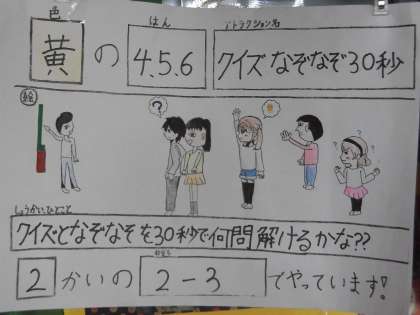 色 はん アトラクション名
黄の 4.5.6 クイズなぞなぞ30秒
絵
?
しょうかいひとこと
クイズとなぞなぞを30秒で何問解けるかな??
2かいの 2-3 でやっています!